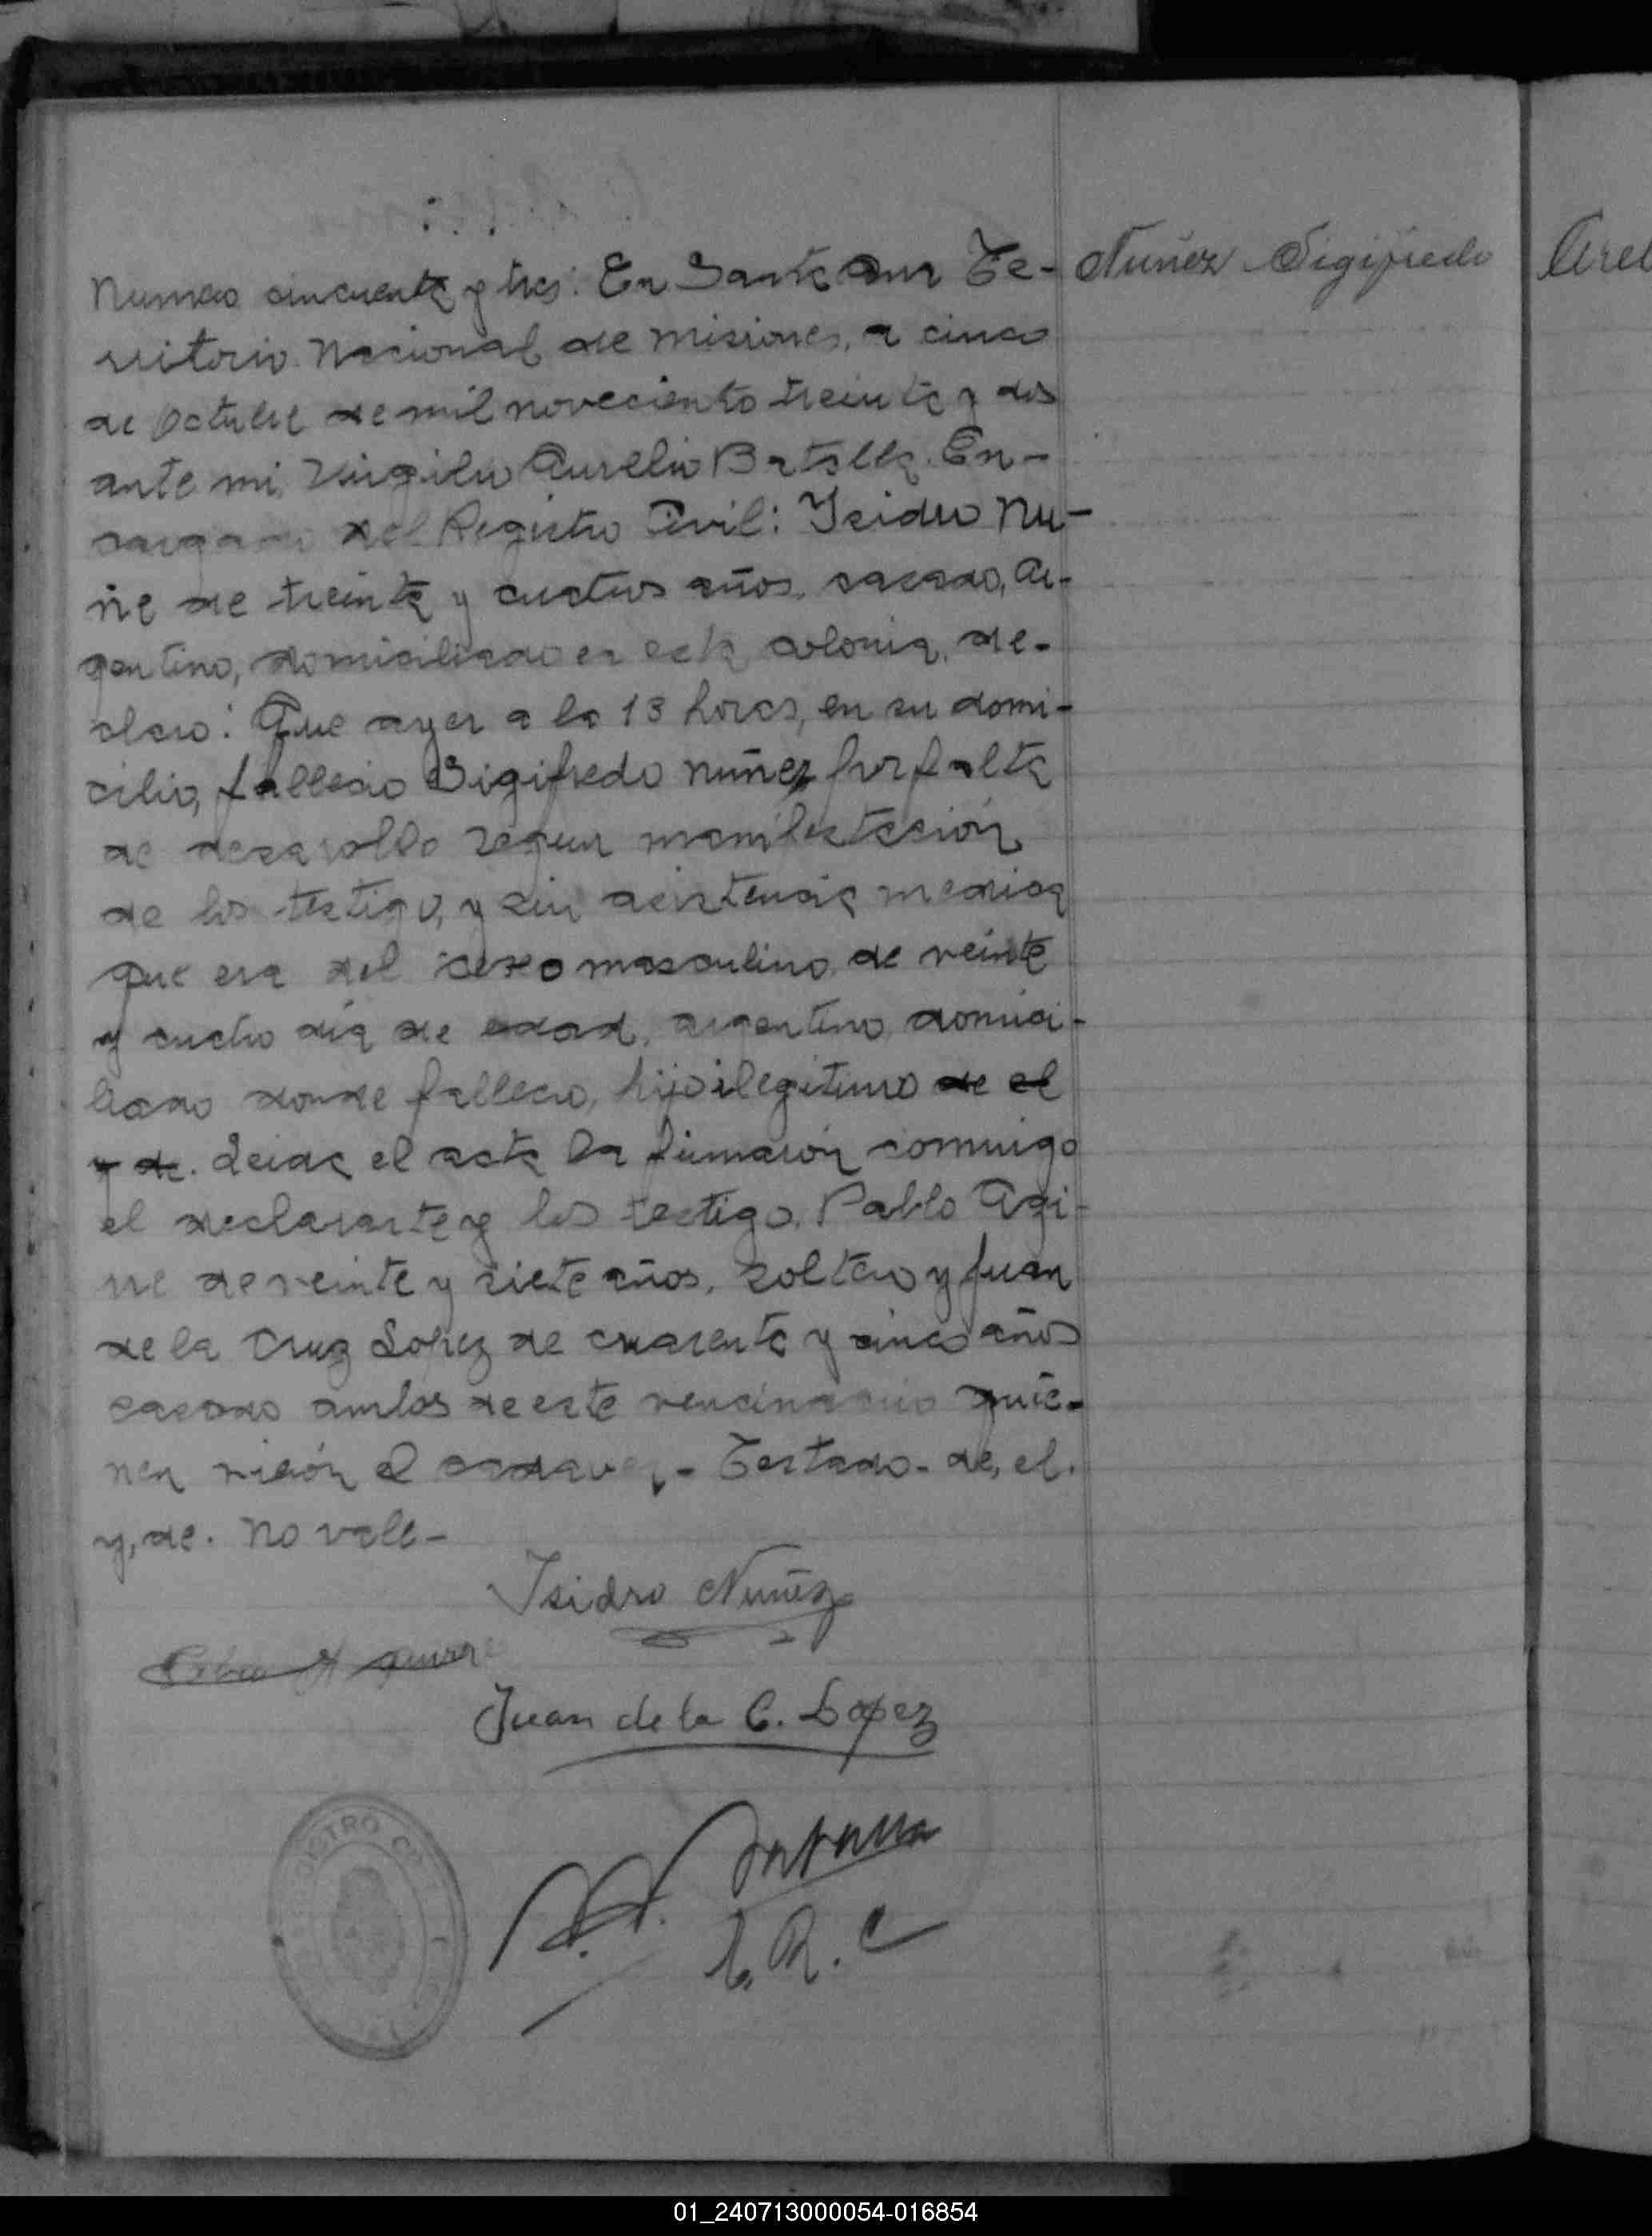 Nuñez Sigifredo
Numero cincuenta y tres: En Santa Ana Te-
rritorio Nacional de Misiones, a cinco
de Octubre de mil noveciento treinta y dos
ante mi, Virgilio Aurelio Batalla. En-
cargado del Registro Civil: Ysidro Nu-
ñe de treinta y cuatros años, casado, Ar-
gentino, domiciliado en esta colonia, de-
claro: Que ayer a la 13 horas, en su domi-
cilio, fallecio Sigifredo Nuñez por falta
de desarollo segun manifestación
de los testigo, y sin asistencia medica
que era del sexo masculino, de veinte
y cuatro dia de edad, argentino, domici-
liado donde fallecio, hijo ilegitimo de el
y de. Leida el acta la firmarón conmigo
el declarante y los testigo. Pablo Agi-
rre de veinte y siete años, soltero y Juan
de la Cruz Lopez de cuarenta y cinco años
casado ambos de este vencindario quie-
nen vierón el cadaver - Testado - de, el.
y, de. No vale -
Isidro Nuñez
Juan de la C. Lopez
E. R. C
REGISTRO CIVIL
01_240713000054-016854